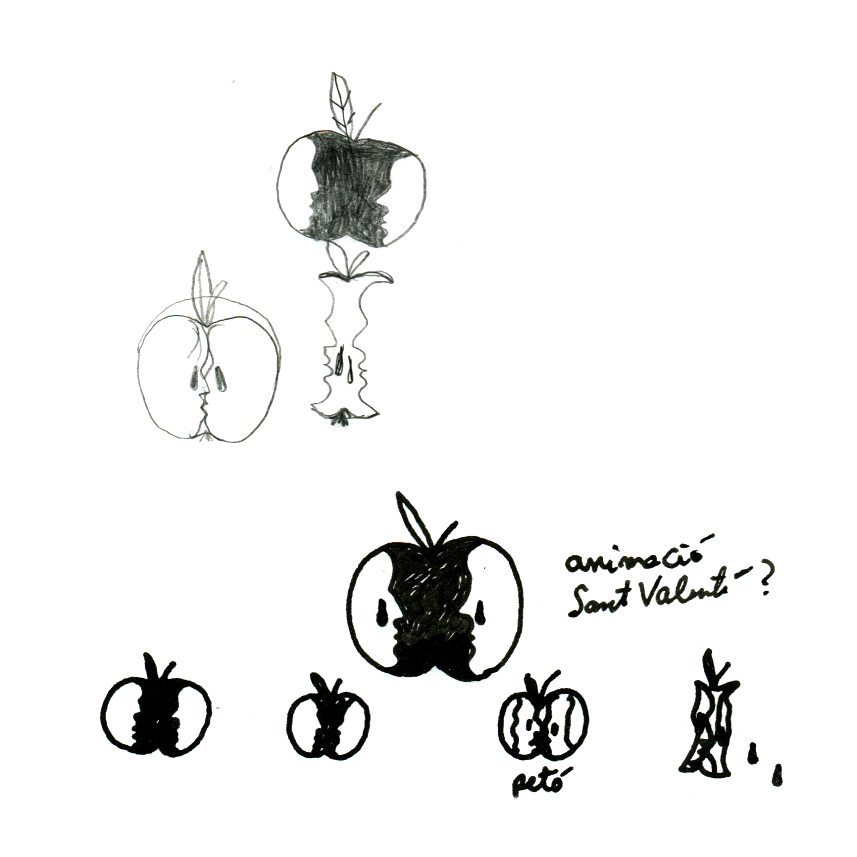 animació
Sant Valentí ?
petó